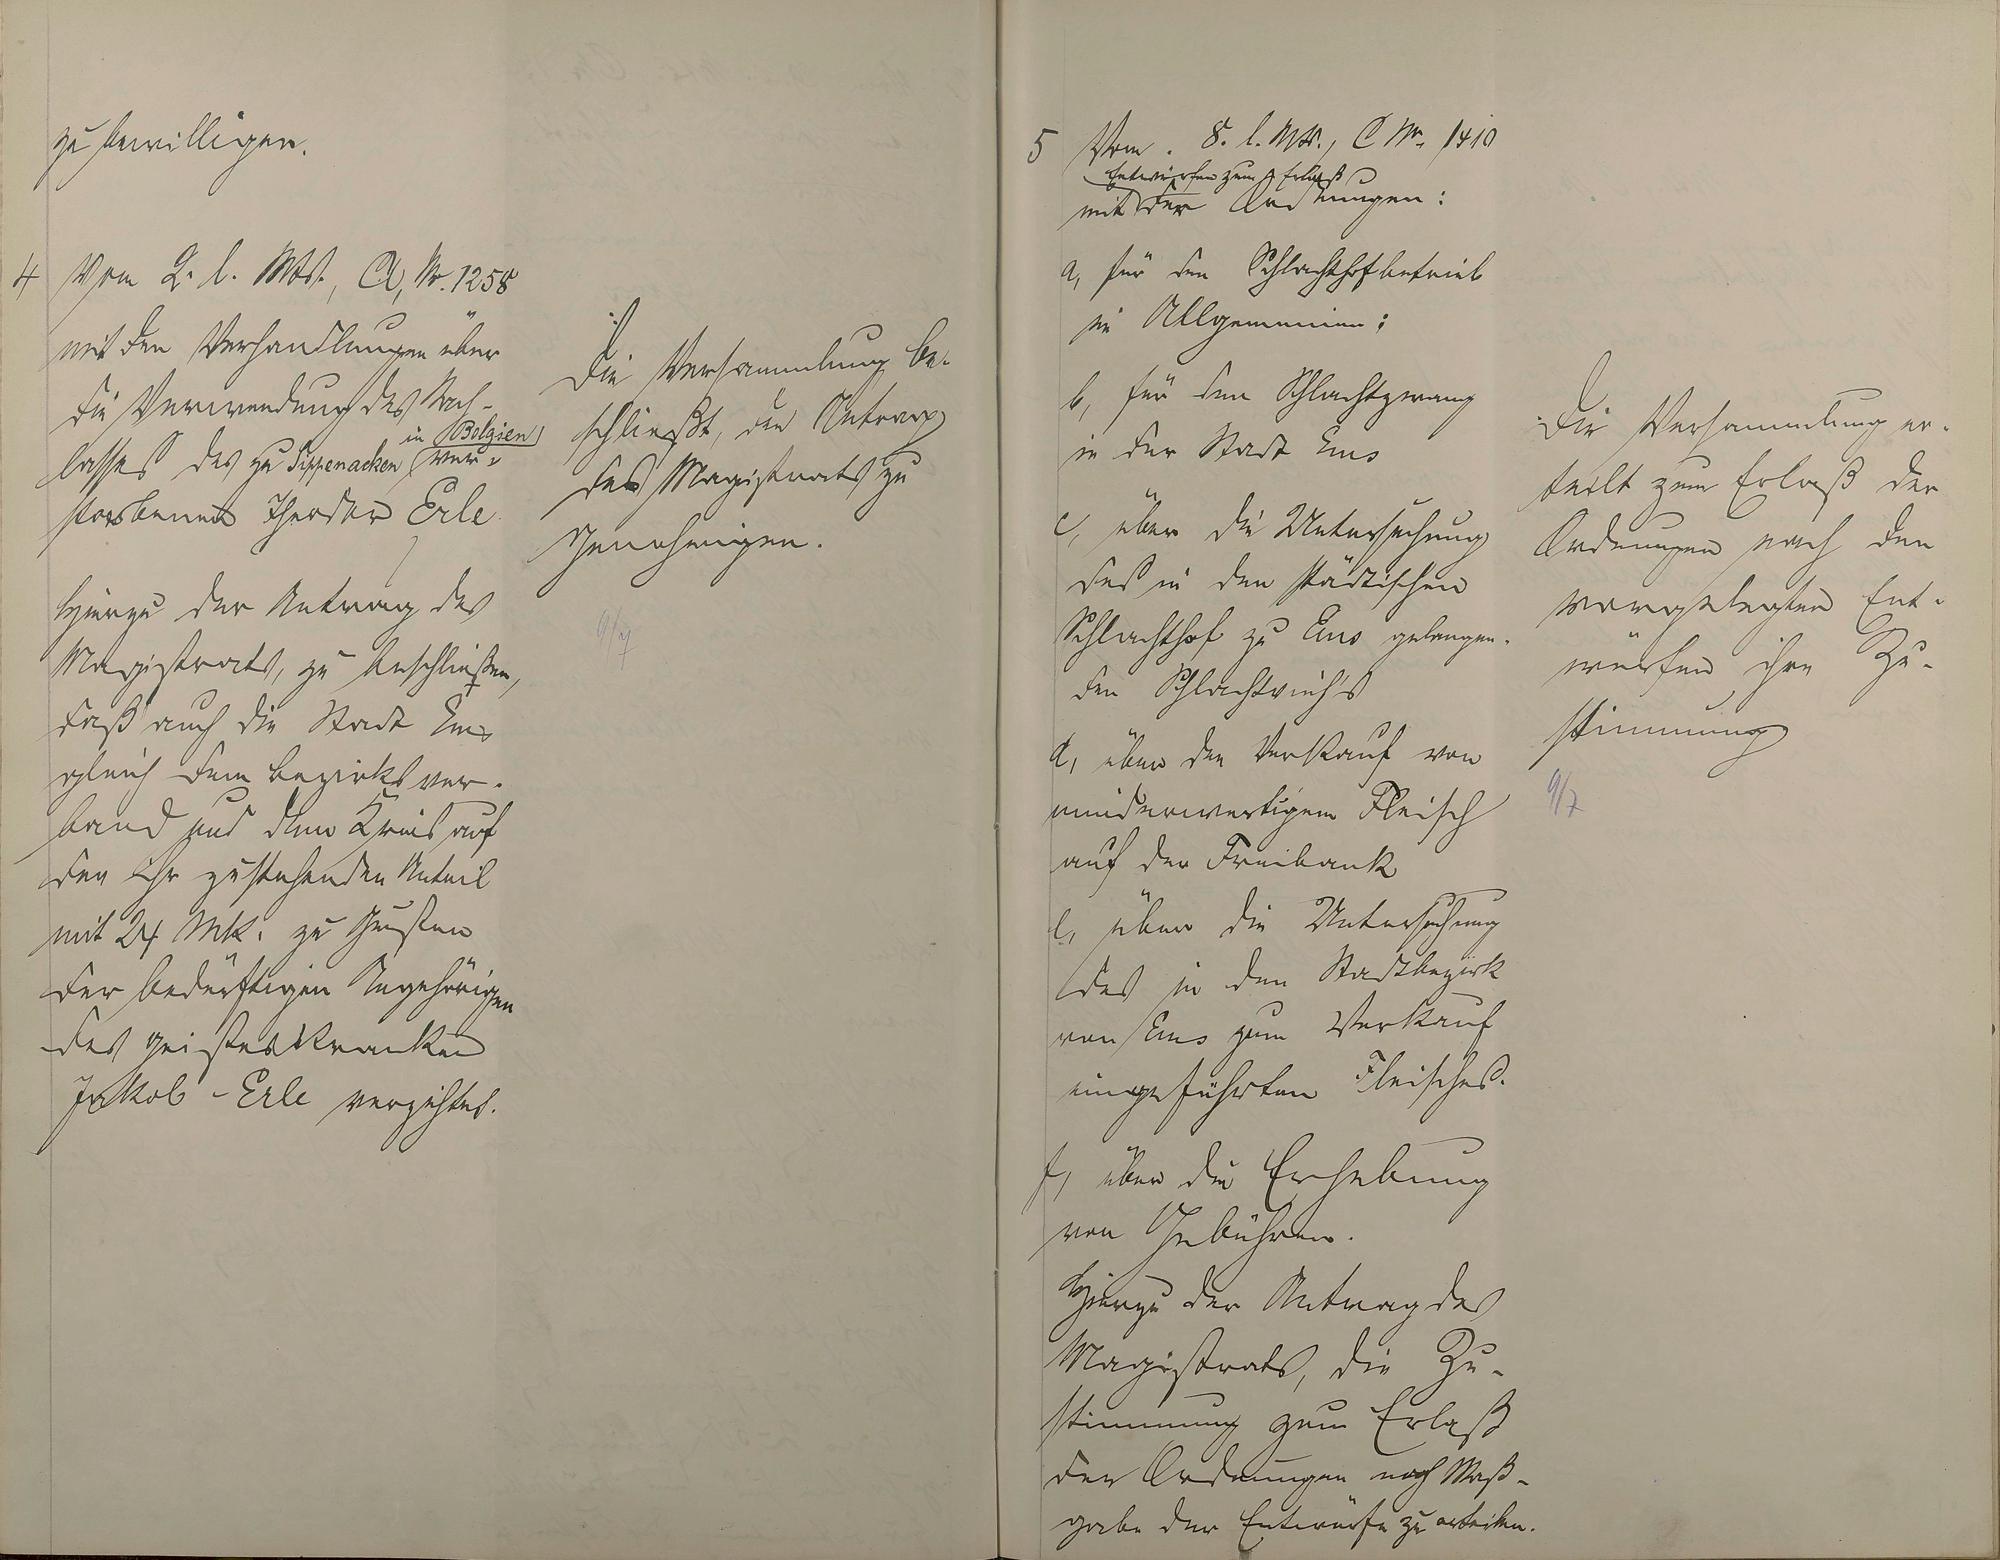 zu bewilligen.
4 Vom 2. l. Mts., A, Nr. 1258
mit den Verhandlungen über
die Verwendung des Nach-
in Belgien
lasses des zu Sippenacken ver-
storbenen Theodor Erle
Hierzu der Antrag des
Magistrats, zu beschließen,
daß auch die Stadt Ems
gleich dem Bezirksver-
band und dem Kreis auf
den ihr zustehenden Anteil
mit 24 Mk. zu Gunsten
der bedürftigen Angehörigen
des geisteskranken
Jakob Erle verzichtet.
Die Versammlung be-
schließt, den Antrag
des Magistrats zu
genehmigen.
9/7
5 Vom 8. l. Mts., C Nr. 1410
Entwürfen zum Erlaß
mit der Ordnungen:
a, für den Schlachthofbetrieb
im Allgemeinen;
b, für den Schlachtzwang
in der Stadt Ems
c, über die Untersuchung
des in den städtischen
Schlachthof zu Ems gelangen-
den Schlachtvieh's
d, über den Verkauf von
minderwertigem Fleisch
auf der Freibank
e, über die Untersuchung
des in den Stadtbezirk
von Ems zum Verkauf
eingeführten Fleisches.
f, über die Erhebung
von Gebühren.
Hierzu der Antrag des
Magistrats, die Zu-
stimmung zum Erlaß
der Ordnungen nach Maß-
gabe der Entwürfe zu erteilen.
Die Versammlung er-
teilt zum Erlaß der
Ordnungen nach den
vorgelegten Ent-
würfen ihre Zu-
stimmung
9/7